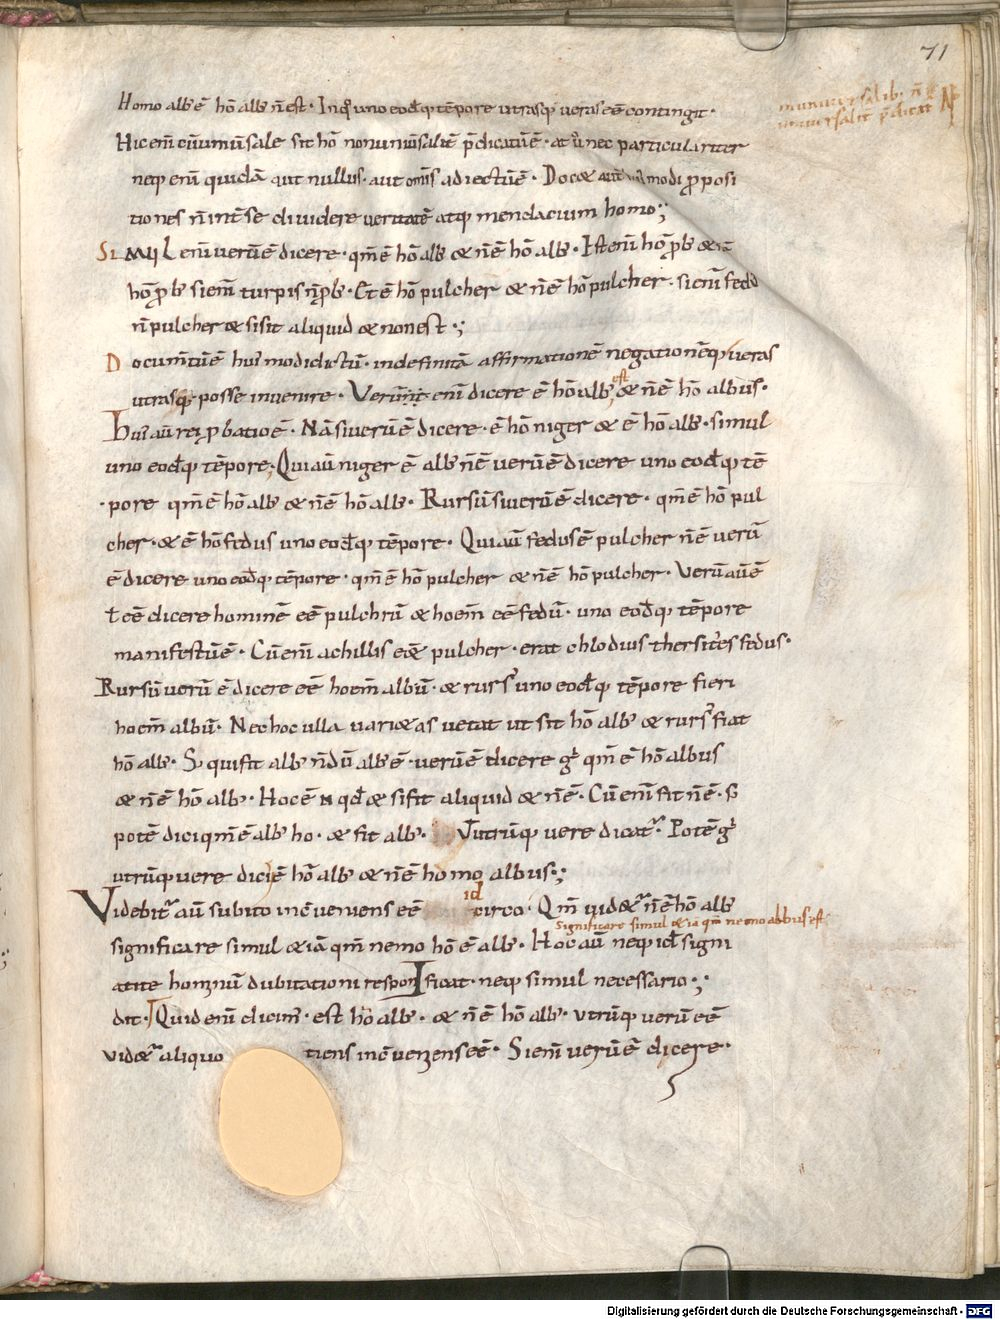 71
Homo alb' ē hō alb' n̄ est · In quo uno eodēq; tēpore utrasq; veras eē contingit ·
Hic eni cū univsale sit hō non univsalit p̄dicatū ē · at v̄ nec particulariter
neq; eni quidā aut nullus · aut omis adiectū ē · Docet modi p̄posi
tiones n̄ int se dividere veritatē atq; mendacium homo ·;
Simul eni verū ē dicere · qm̄ ē hō alb' & n̄ ē hō alb' · Ist eni hō p̄b' &
hō p̄b' si eni turpis n̄ p̄b' · Et ē hō pulcher & n̄ ē hō pulcher · si eni fedus
n̄ pulcher & si sit aliquid & non est ·;
Documtū ē hui modi dictū · indefinitā affirmationē negationēq; veras
utrasq; posse invenire · Verū eni dicere ē hō alb' est & n̄ ē hō albus ·
Hui aū rei p̄batio ē · Nā si verū ē dicere · ē hō niger & ē hō alb' · simul
uno eodēq; tēpore · Qui aū niger ē alb' n̄ ē verū ē dicere uno eodēq; tē
pore qm̄ ē hō alb' & n̄ ē hō alb' · Rursū si verū ē dicere · qm̄ ē hō pul
cher · & ē hō fedus uno eodēq; tēpore · Qui aū fedus ē pulcher n̄ ē verū
ē dicere uno eodēq; tēpore · qm̄ ē hō pulcher & n̄ ē hō pulcher · Verū aū ē
eē dicere hominē eē pulchrū & hoem̄ eē fedū · uno eodēq; tēpore
manifestū ē · Cū eni achillis eēt pulcher · erat chlodius thersites fedus ·
Rursū verū ē dicere eē hoem̄ albū · & rurs' uno eodēq; tēpore fieri
hoem̄ albū · Nec hoc ulla varietas vetat ut sit hō alb' & rurs' fiat
hō alb' · S; qui fit alb' n̄dū alb' ē · verū ē dicere g° qm̄ ē hō albus
& n̄ ē hō alb' · Hoc ē n̄ qd & si fit aliquid & n̄ ē · Cū eni fit n̄ ē · s;
potē dici qm̄ ē alb' ho · & fit alb' · Utrūq; vere dicat · Potē g°
utrūq; vere dici ē hō alb' & n̄ ē homo albus ·;
Videbit aū subito incōveniens eē idcirco · Qm̄ videt n̄ ē hō alb'
significare simul & iā qm̄ nemo albus est
significare simul & iā qm̄ nemo hō ē alb' · Hoc aū neq; id signi
ficat · neq; simul necessario ·;
atite hominū dubitationi respon
dit · Quid eni dicim · est hō alb' · & n̄ ē hō alb' · utrūq; verū eē
videt aliquotiens incōveniens eē · Si eni verū ē dicere ·
Digitalisierung gefördert durch die Deutsche Forschungsgemeinschaft - DFG